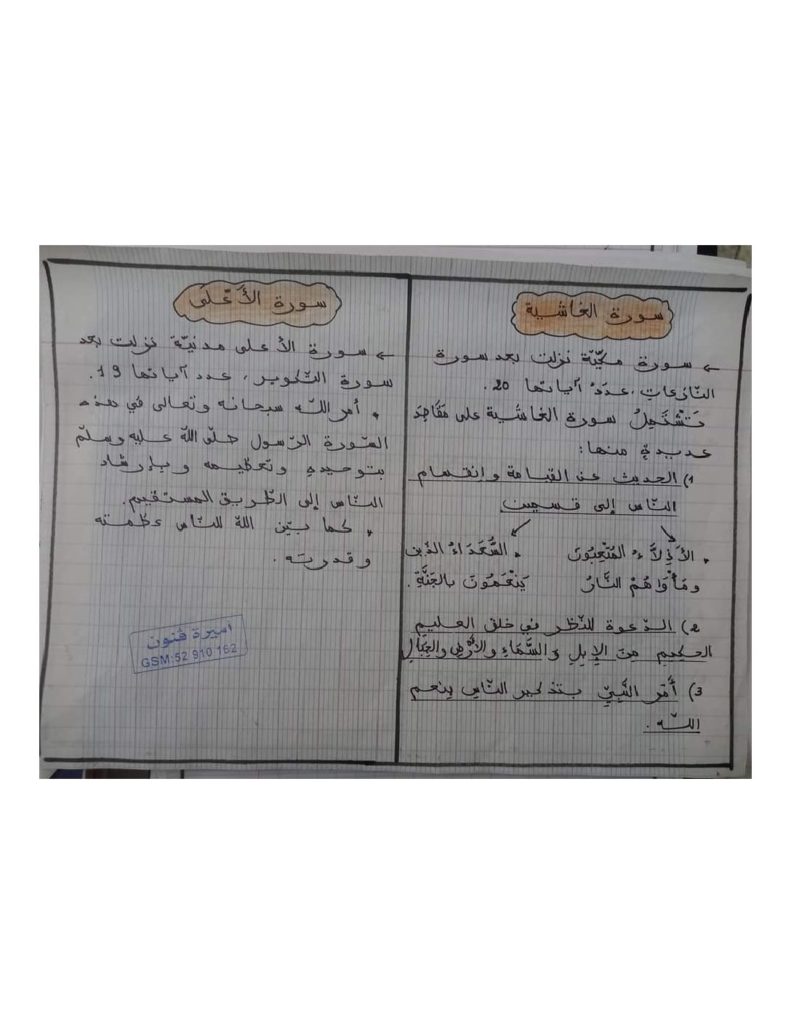 سورة الغاشية
← سورة مكيّة نزلت بعد سورة
النازعات، عددُ آياتها 20.
تَشْتَمِلُ سورة الغاشية على مَقَاصِدَ
عديدةٍ منها:
1) الحديث عن القيامة وانقسام
النّاس إلى قسمين
• الأذِلاَّءُ المُتْعَبُونَ
ومَأْوَاهُمْ النَّارُ
• السُّعَدَاءُ الذين
يَنْعَمُونَ بالجَنَّةِ.
2) الدّعوة للنّظر في خلق العليم
الحكيم مِنَ الإِبِلِ والسَّمَاءِ والأَرْضِ والجِبَالِ
3) أَمْر النَّبِيّ بتذكير النّاس بنعم
اللّه.
سورة الأَعْلَى
← سورة الأعلى مدنيّة نزلت بعد
سورة التّكوير، عدد آياتها 19.
• أمر اللّه سبحانه وتعالى في هذه
السّورة الرّسول صلّى اللّه عليه وسلّم
بتوحيده وتعظيمه وبإرشاد
النّاس إلى الطّريق المستقيم.
• كما بيّن اللّه للنّاس عظمته
وقدرته.
اميرة فنون
GSM:52 910 162